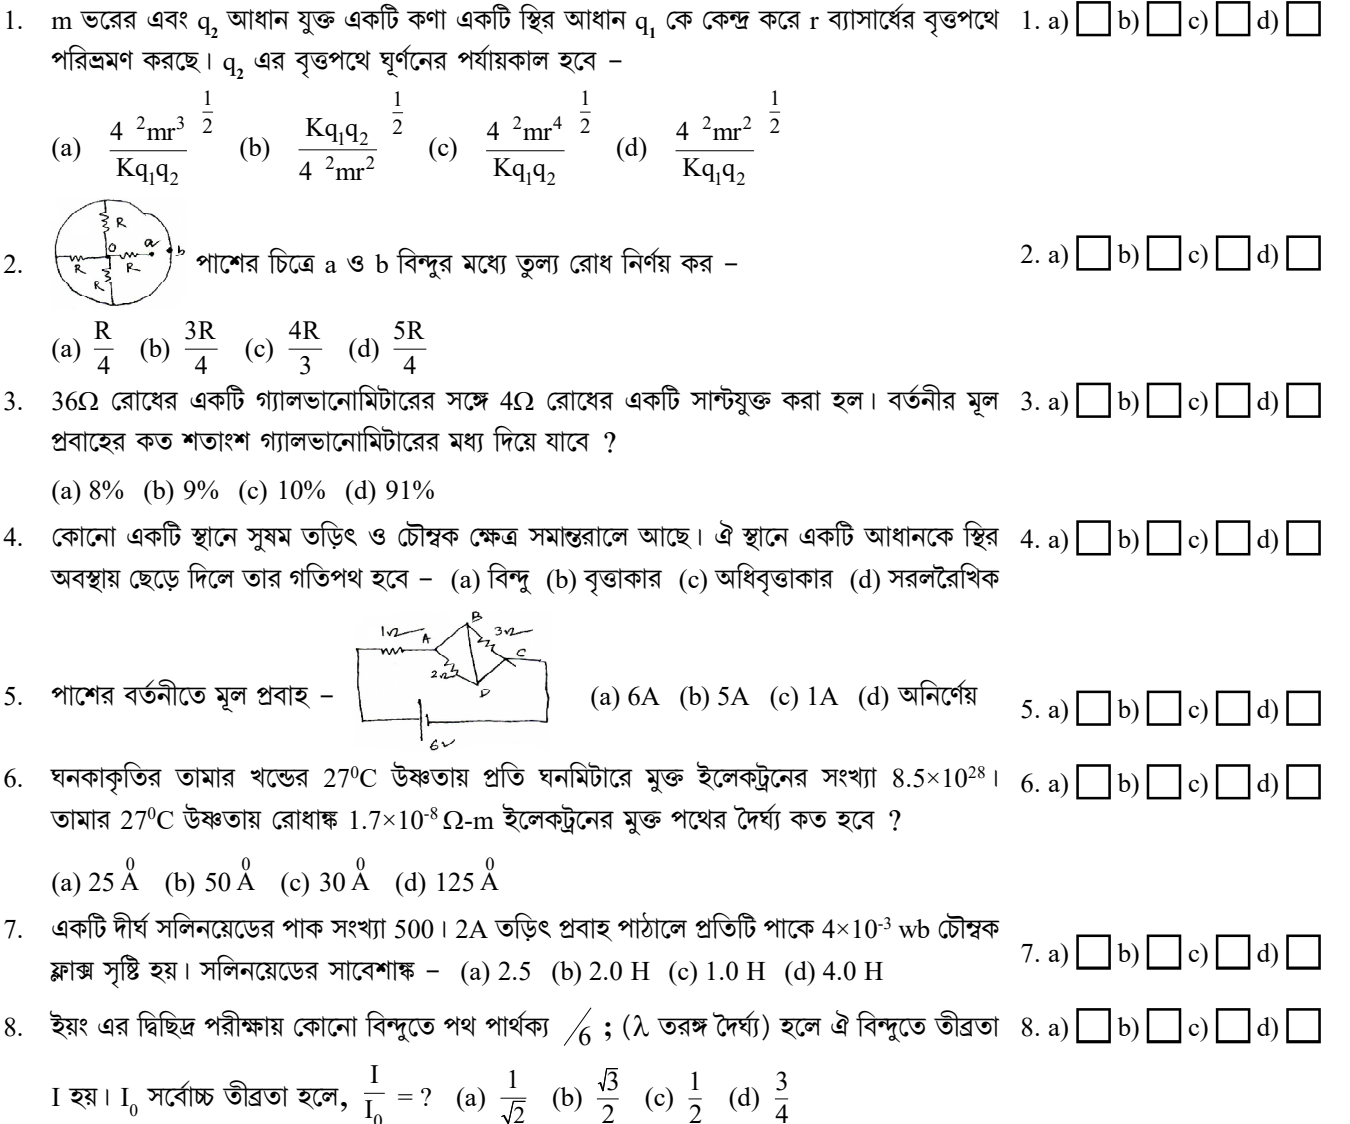 1. m ভরের এবং q₂ আধান যুক্ত একটি কণা একটি স্থির আধান q₁ কে কেন্দ্র করে r ব্যাসার্ধের বৃত্তপথে 1. a) b) c) d)
পরিভ্রমণ করছে। q₂ এর বৃত্তপথে ঘূর্ণনের পর্যায়কাল হবে –
(a) 4 ²mr³/Kq₁q₂ 1/2 (b) Kq₁q₂/4 ²mr² 1/2 (c) 4 ²mr⁴/Kq₁q₂ 1/2 (d) 4 ²mr²/Kq₁q₂ 1/2
R
O a b
R R
R
2. পাশের চিত্রে a ও b বিন্দুর মধ্যে তুল্য রোধ নির্ণয় কর – 2. a) b) c) d)
(a) R/4 (b) 3R/4 (c) 4R/3 (d) 5R/4
3. 36Ω রোধের একটি গ্যালভানোমিটারের সঙ্গে 4Ω রোধের একটি সান্টযুক্ত করা হল। বর্তনীর মূল 3. a) b) c) d)
প্রবাহের কত শতাংশ গ্যালভানোমিটারের মধ্য দিয়ে যাবে ?
(a) 8% (b) 9% (c) 10% (d) 91%
4. কোনো একটি স্থানে সুষম তড়িৎ ও চৌম্বক ক্ষেত্র সমান্তরালে আছে। ঐ স্থানে একটি আধানকে স্থির 4. a) b) c) d)
অবস্থায় ছেড়ে দিলে তার গতিপথ হবে – (a) বিন্দু (b) বৃত্তাকার (c) অধিবৃত্তাকার (d) সরলরৈখিক
B
1Ω A 3Ω
C
2Ω
D
5. পাশের বর্তনীতে মূল প্রবাহ – (a) 6A (b) 5A (c) 1A (d) অনির্ণেয় 5. a) b) c) d)
6v
6. ঘনকাকৃতির তামার খন্ডের 27⁰C উষ্ণতায় প্রতি ঘনমিটারে মুক্ত ইলেকট্রনের সংখ্যা 8.5×10²⁸। 6. a) b) c) d)
তামার 27⁰C উষ্ণতায় রোধাঙ্ক 1.7×10⁻⁸ Ω-m ইলেকট্রনের মুক্ত পথের দৈর্ঘ্য কত হবে ?
(a) 25 Å (b) 50 Å (c) 30 Å (d) 125 Å
7. একটি দীর্ঘ সলিনয়েডের পাক সংখ্যা 500। 2A তড়িৎ প্রবাহ পাঠালে প্রতিটি পাকে 4×10⁻³ wb চৌম্বক
ফ্লাক্স সৃষ্টি হয়। সলিনয়েডের সাবেশাঙ্ক – (a) 2.5 (b) 2.0 H (c) 1.0 H (d) 4.0 H 7. a) b) c) d)
8. ইয়ং এর দ্বিছিদ্র পরীক্ষায় কোনো বিন্দুতে পথ পার্থক্য /6 ; (λ তরঙ্গ দৈর্ঘ্য) হলে ঐ বিন্দুতে তীব্রতা 8. a) b) c) d)
I হয়। I₀ সর্বোচ্চ তীব্রতা হলে, I/I₀ = ? (a) 1/√2 (b) √3/2 (c) 1/2 (d) 3/4